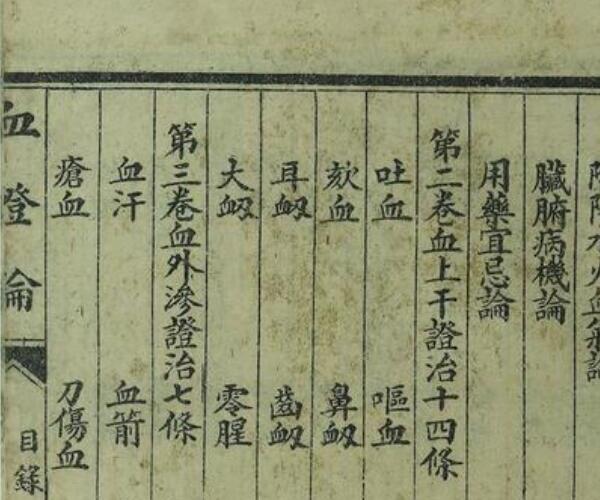 水火血氣論
臟腑病機論
用藥宜忌論
第二卷血上干證治十四條
吐血 嘔血
欬血 鼻衂
耳衂 齒衂
大衂 零腥
第三卷血外滲證治七條
血汗 血箭
瘡血 刀傷血
血證論
目錄